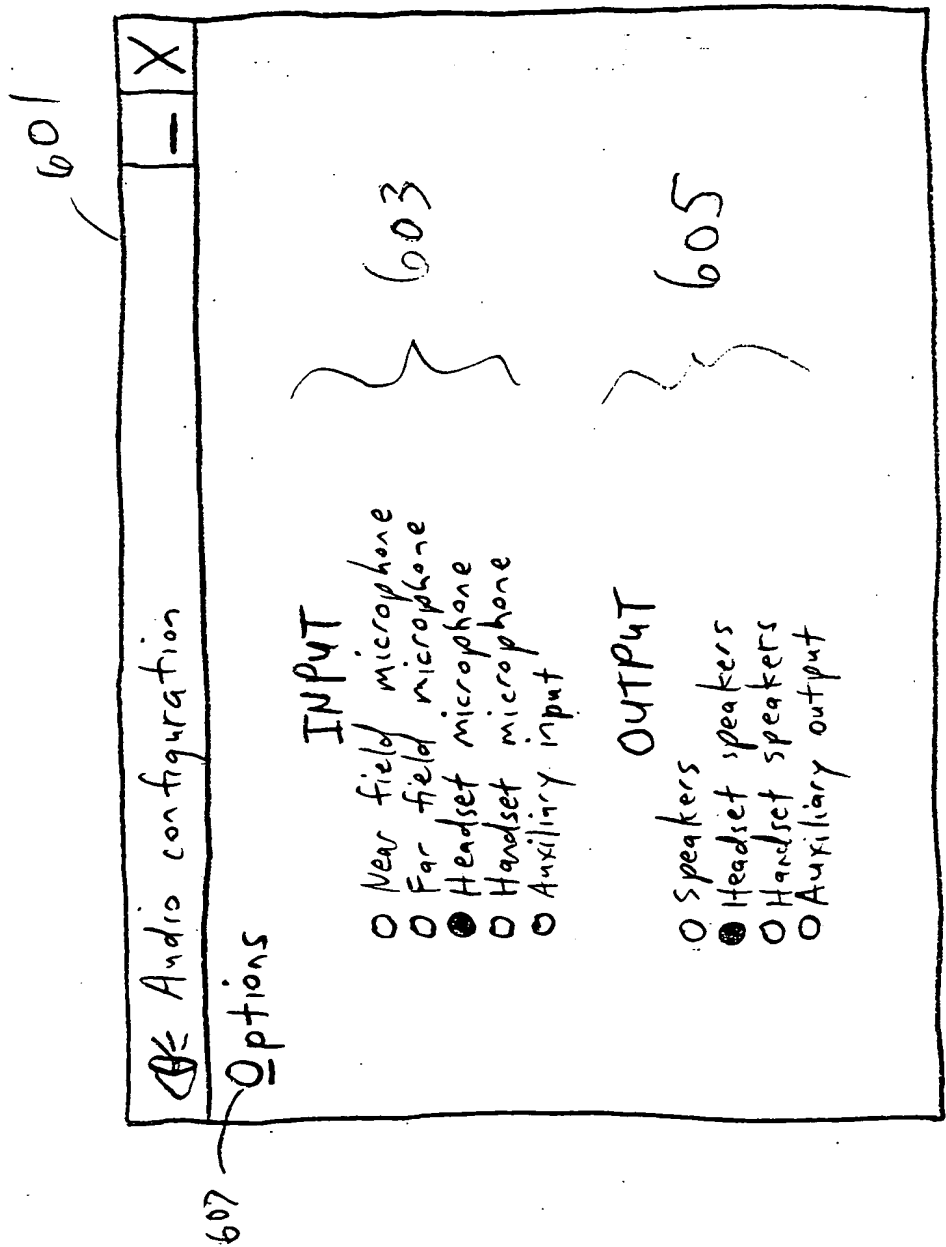 601
Audio configuration – X
607
Options
INPUT
Near field microphone
Far field microphone
Headset microphone
Handset microphone
Auxiliary input
603
OUTPUT
Speakers
Headset speakers
Handset speakers
Auxiliary output
605